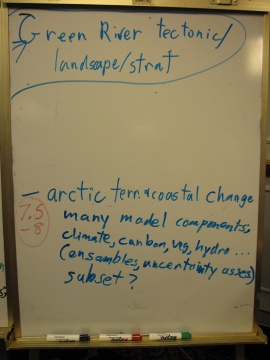 Green River tectonic/
landscape/strat
– arctic terr. & coastal change
7.5
–8
many model components,
climate, carbon, veg, hydro ...
(ensambles, uncertainty asses)
subset?